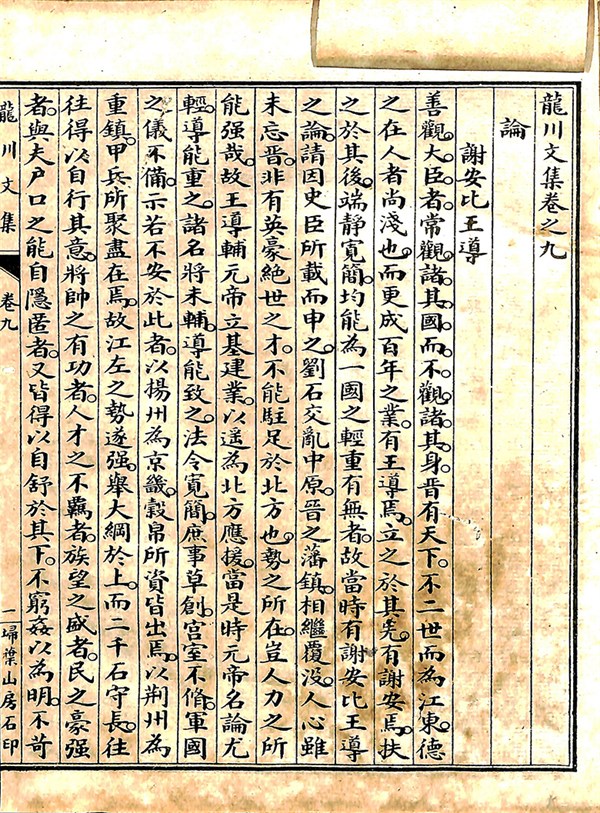 龍川文集卷之九
論
謝安比王導
善觀大臣者常觀諸其國而不觀諸其身晋有天下不二世而為江東德
之在人者尚淺也而更成百年之業有王導焉立之於其先有謝安焉扶
之於其後端靜寬簡均能為一國之輕重有無者故當時有謝安比王導
之論請因史臣所載而申之劉石交亂中原晋之藩鎮相繼覆沒人心雖
未忘晋非有英豪絕世之才不能駐足於北方也勢之所在豈人力之所
能强哉故王導輔元帝立基建業以遥為北方應援當是時元帝名論尤
輕導能重之諸名將未輔導能致之法令寬簡庶事草創宫室不脩軍國
之儀不備示若不安於此者以揚州為京畿穀帛所資皆出焉以荆州為
重鎮甲兵所聚盡在焉故江左之勢遂强舉大綱於上而二千石守長往
往得以自行其意將帥之有功者人才之不羈者族望之盛者民之豪强
者與夫户口之能自隱匿者又皆得以自舒於其下不窮姦以為明不苛
龍川文集 卷九 一 掃葉山房石印